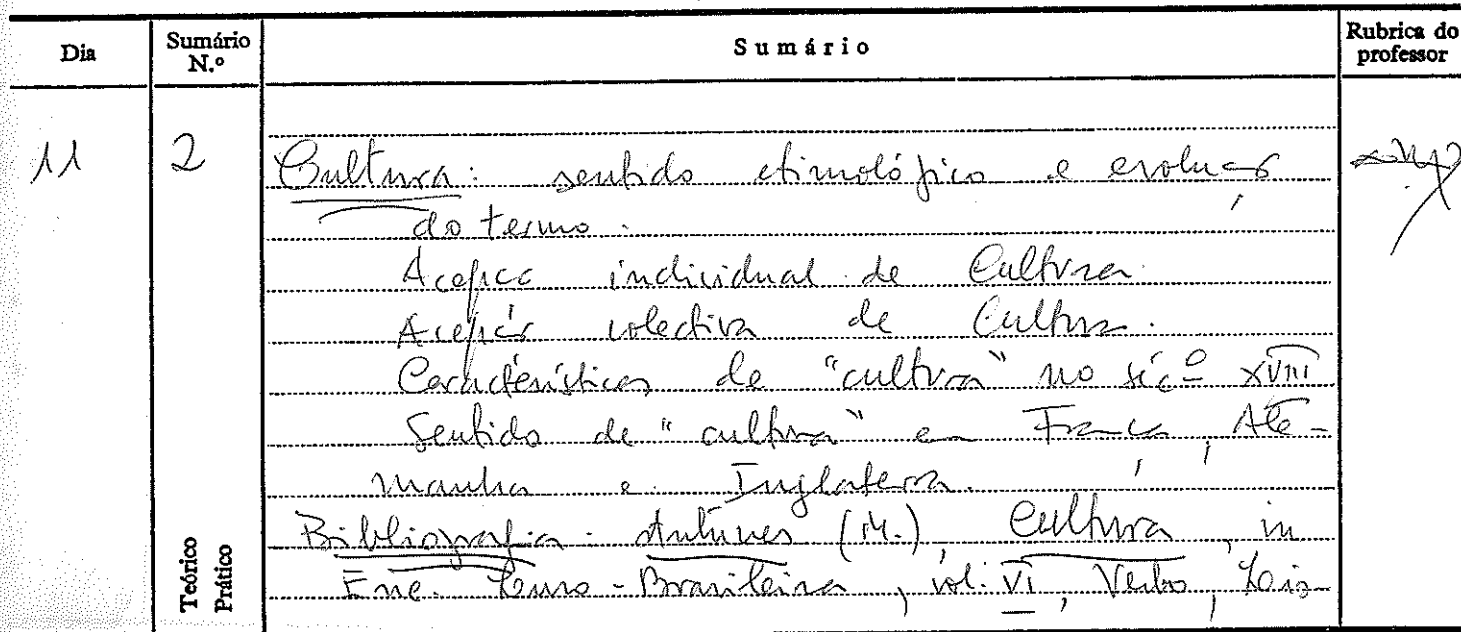 Dia Sumário N.º Sumário Rubrica do professor
11 2 Cultura: sentido etimológico e evolução
do termo.
Acepção individual de Cultura.
Acepção colectiva de Cultura.
Características de "cultura" no séc.º XVIII
Sentido de "cultura" em França, Ale-
manha e Inglaterra.
Bibliografia: Antunes (M.), Cultura, in
Enc. Luso-Brasileira, vol. VI, Verbo, Lis-
Teórico
Prático